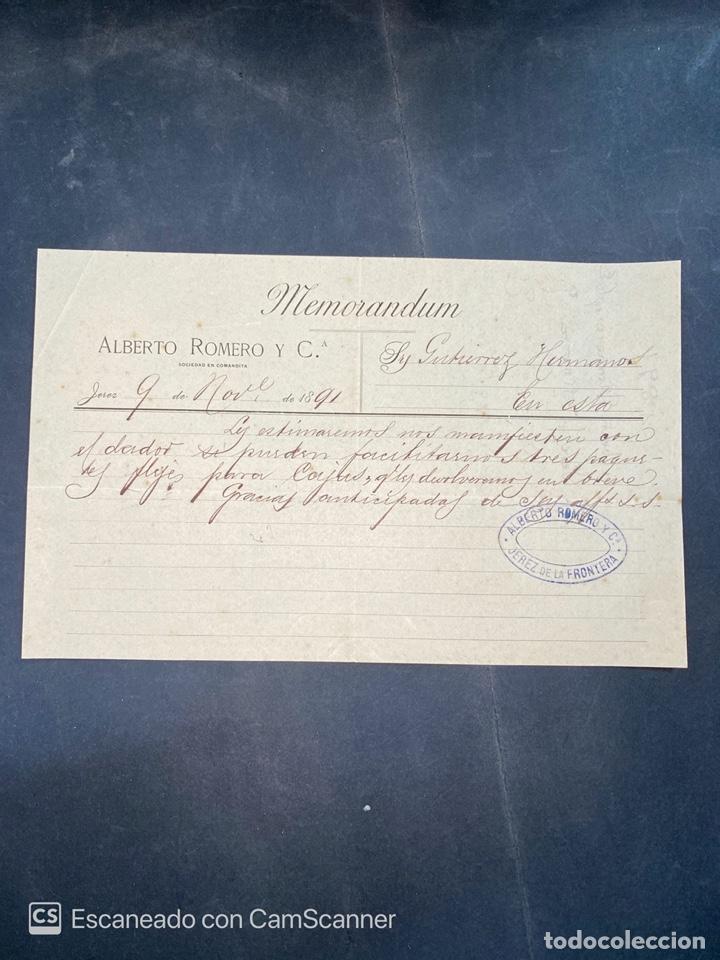 Memorandum
ALBERTO ROMERO Y C.ª
SOCIEDAD EN COMANDITA
Sres Gutierrez Hermanos
Jerez 9 de Nove de 1891
En esta
Les estimaremos nos manifiesten con
el dador si pueden facilitarnos tres paque-
tes flejes para Cajas, q les devolveremos en breve.
Gracias anticipadas de Sus s.s.
ALBERTO ROMERO Y Cª
JEREZ DE LA FRONTERA
CS Escaneado con CamScanner
todocoleccion